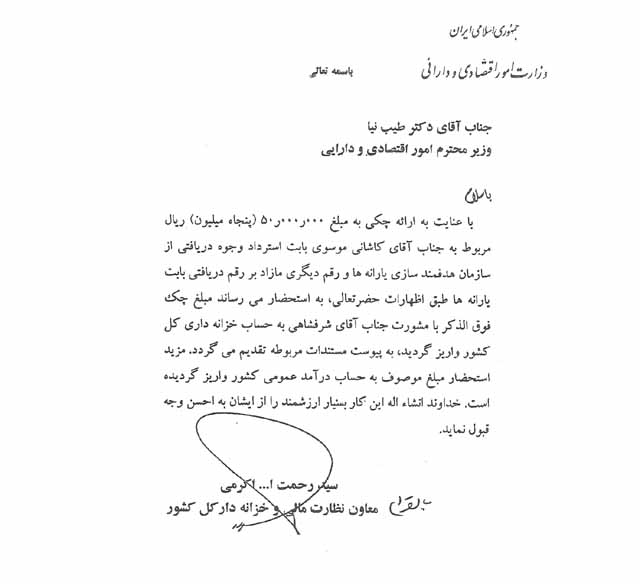 جمهوری اسلامی ایران
وزارت امور اقتصادی و دارائی
باسمه تعالی
جناب آقای دکتر طیب نیا
وزیر محترم امور اقتصادی و دارایی
باسلام
با عنایت به ارائه چکی به مبلغ ۵۰٫۰۰۰٫۰۰۰ (پنجاه میلیون) ریال
مربوط به جناب آقای کاشانی موسوی بابت استرداد وجوه دریافتی از
سازمان هدفمند سازی یارانه ها و رقم دیگری مازاد بر رقم دریافتی بابت
یارانه ها طبق اظهارات حضرتعالی، به استحضار می رساند مبلغ چک
فوق الذکر با مشورت جناب آقای شرفشاهی به حساب خزانه داری کل
کشور واریز گردید، به پیوست مستندات مربوطه تقدیم می گردد. مزید
استحضار مبلغ موصوف به حساب درآمد عمومی کشور واریز گردیده
است. خداوند انشاء اله این کار بسیار ارزشمند را از ایشان به احسن وجه
قبول نماید.
سیدرحمت ا... اکرمی
معاون نظارت مالی و خزانه دارکل کشور